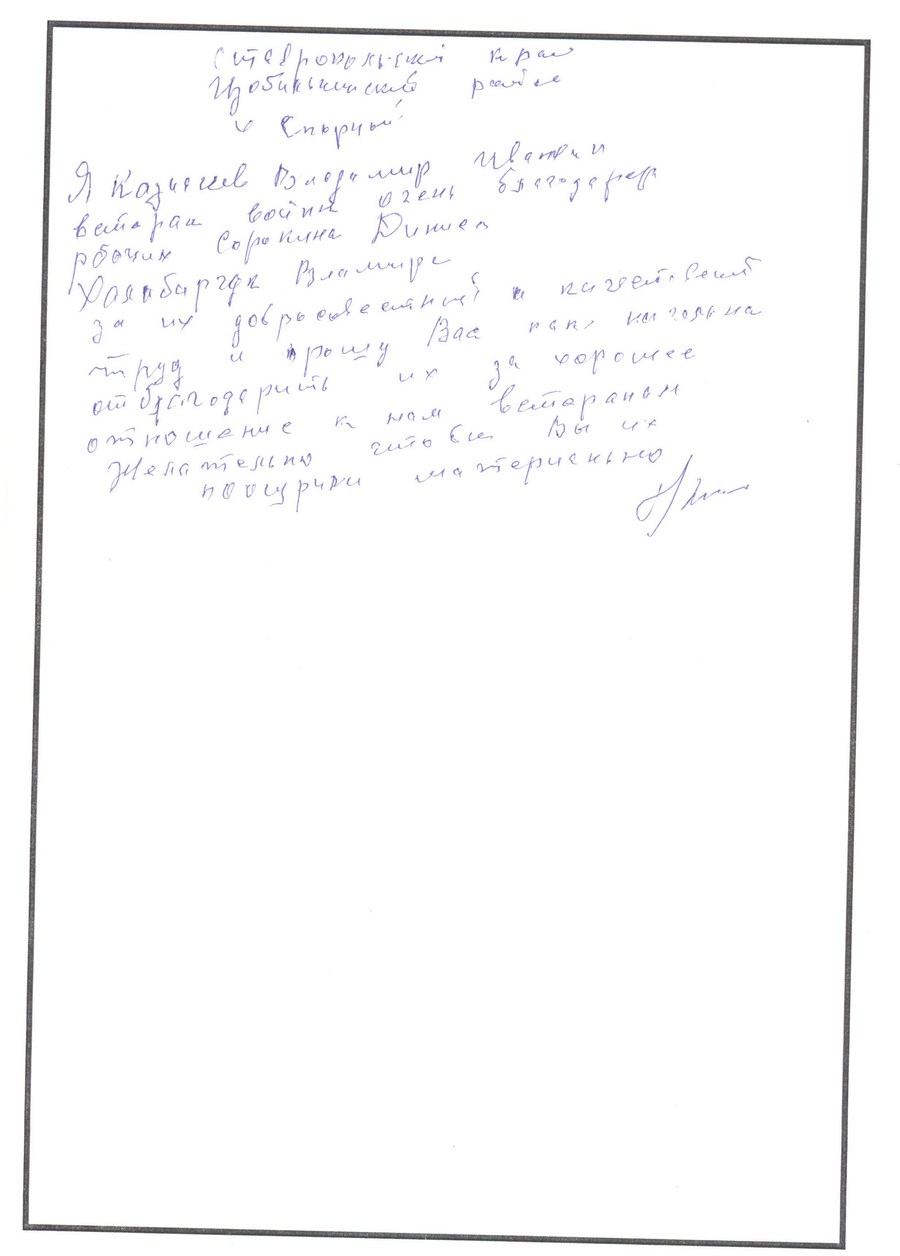 Ставропольский край
Изобильненский район
х Спорный
Я Казначев Владимир Иванович
ветеран войны очень благодарен
рбочих Сорокина Дениса
Владимира
за их добросовестный и качественный
труд и прошу Вас как начальна
отблагодарить их за хорошее
отношение к нам ветеранам
Желательно чтобы Вы их
поощрили материально